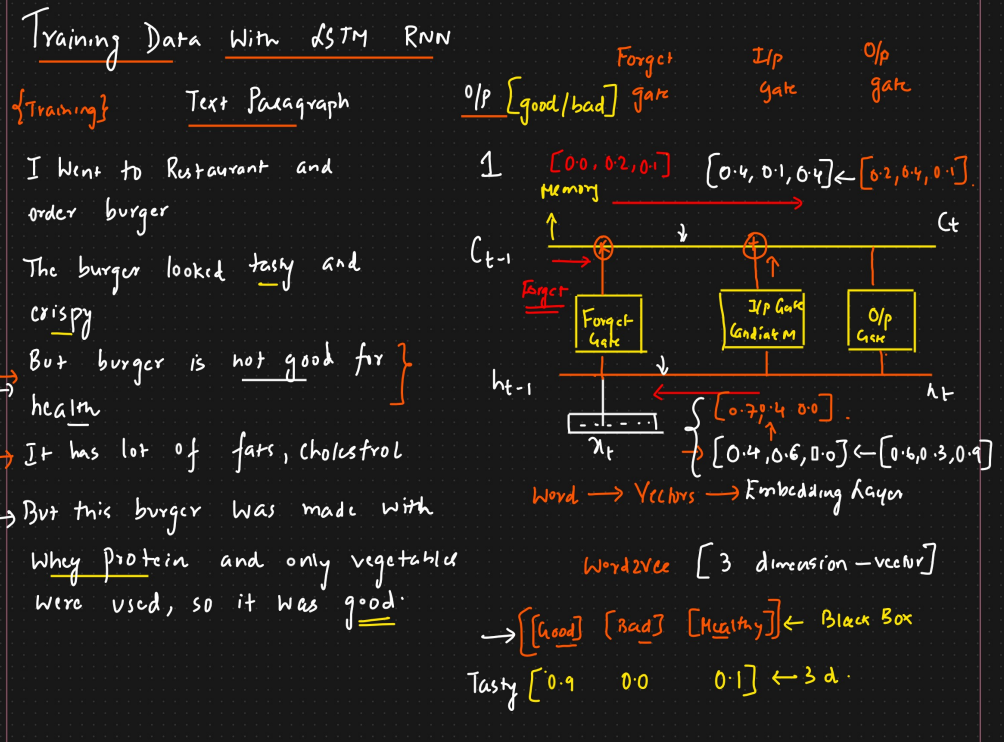 Training Data With LSTM RNN
{Training} Text Paragraph
I Went to Restaurant and
order burger
The burger looked tasty and
crispy
But burger is not good for
health
It has lot of fats, Cholestrol
But this burger was made with
Whey protein and only vegetables
were used, so it was good.
O/p [good/bad]
1
Forget
gate
I/p
gate
O/p
gate
[0.0, 0.2, 0.1] [0.4, 0.1, 0.4] ← [0.2, 0.4, 0.1]
Memory
Ct-1
Ct
×
+
Forget
Forget
Gate
I/p Gate
Candiat M
O/p
Gate
ht-1
ht
xt
[0.7, 0.4 0.0]
[0.4, 0.6, 0.0] ← [0.6, 0.3, 0.9]
Word → Vectors → Embedding Layer
Word2Vec [3 dimension - vector]
→ [[Good] [Bad] [Healthy]] ← Black Box
Tasty [0.9 0.0 0.1] ← 3 d.